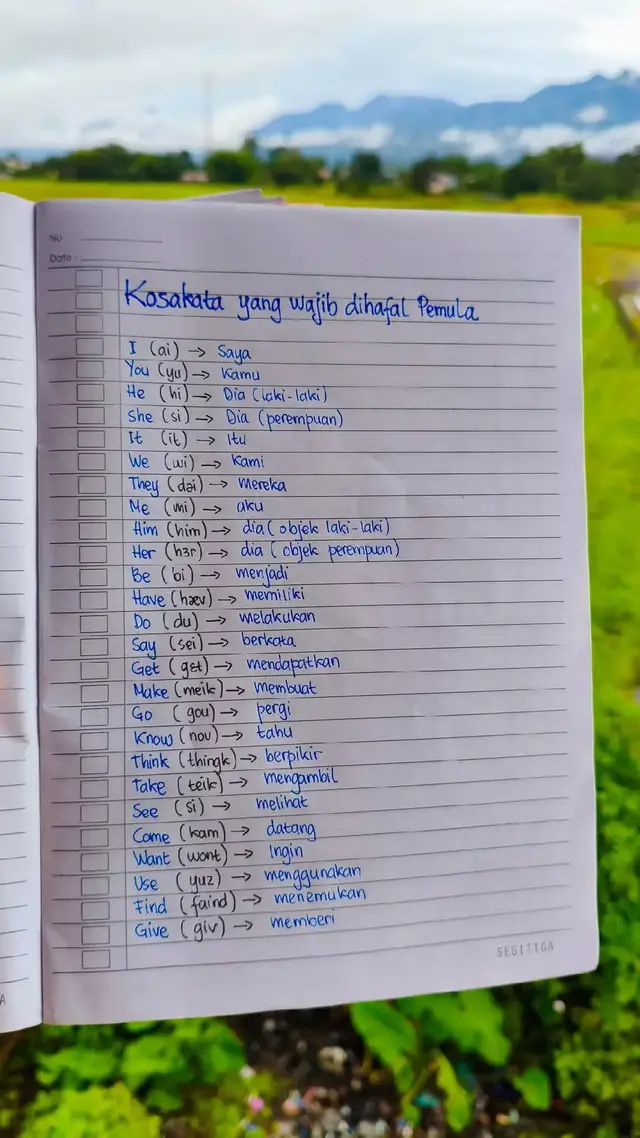 No
Date
Kosakata yang wajib dihafal Pemula
I (ai) → Saya
You (yu) → Kamu
He (hi) → Dia (laki-laki)
She (si) → Dia (perempuan)
It (it) → Itu
We (wi) → Kami
They (dəi) → Mereka
Me (mi) → aku
Him (him) → dia (objek laki-laki)
Her (hɜr) → dia (objek perempuan)
Be (bi) → menjadi
Have (hæv) → memiliki
Do (du) → melakukan
Say (sei) → berkata
Get (gɛt) → mendapatkan
Make (meik) → membuat
Go (gou) → pergi
Know (nou) → tahu
Think (thingk) → berpikir
Take (teik) → mengambil
See (si) → melihat
Come (kam) → datang
Want (wont) → Ingin
Use (yuz) → menggunakan
Find (faind) → menemukan
Give (giv) → memberi
SEGITIGA
A